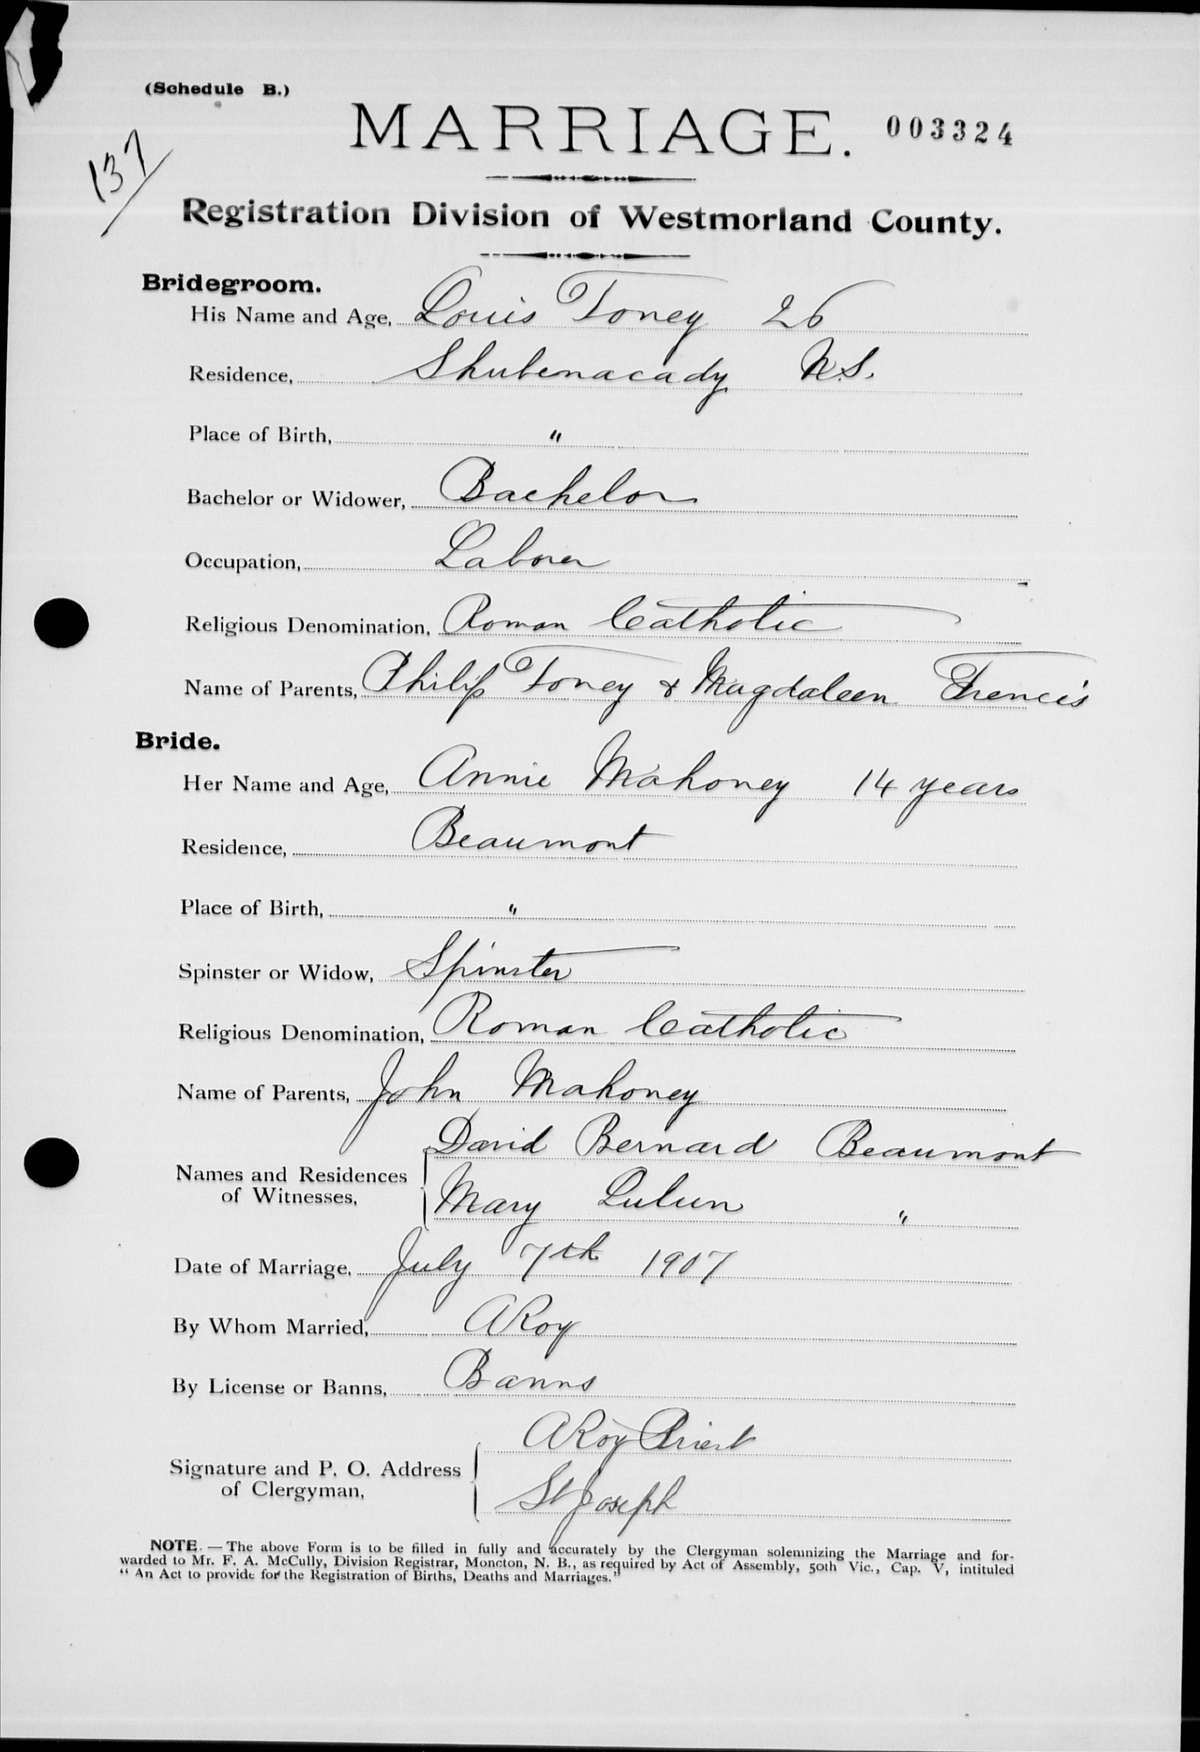 (Schedule B.)
MARRIAGE. 003324
137
Registration Division of Westmorland County.
Bridegroom.
His Name and Age, Louis Toney 26
Residence, Shubenacady N.S.
Place of Birth, "
Bachelor or Widower, Bachelor
Occupation, Laborer
Religious Denomination, Roman Catholic
Name of Parents, Philip Toney & Magdaleen Francis
Bride.
Her Name and Age, Annie Mahoney 14 years
Residence, Beaumont
Place of Birth, "
Spinster or Widow, Spinster
Religious Denomination, Roman Catholic
Name of Parents, John Mahoney
David Bernard Beaumont
Names and Residences
of Witnesses,
Mary "
Date of Marriage, July 7th 1907
By Whom Married, A Roy
By License or Banns, Banns
A Roy Priest
Signature and P. O. Address
of Clergyman,
St Joseph
NOTE. — The above Form is to be filled in fully and accurately by the Clergyman solemnizing the Marriage and for-
warded to Mr. F. A. McCully, Division Registrar, Moncton, N. B., as required by Act of Assembly, 50th Vic., Cap. V, intituled
" An Act to provide for the Registration of Births, Deaths and Marriages."